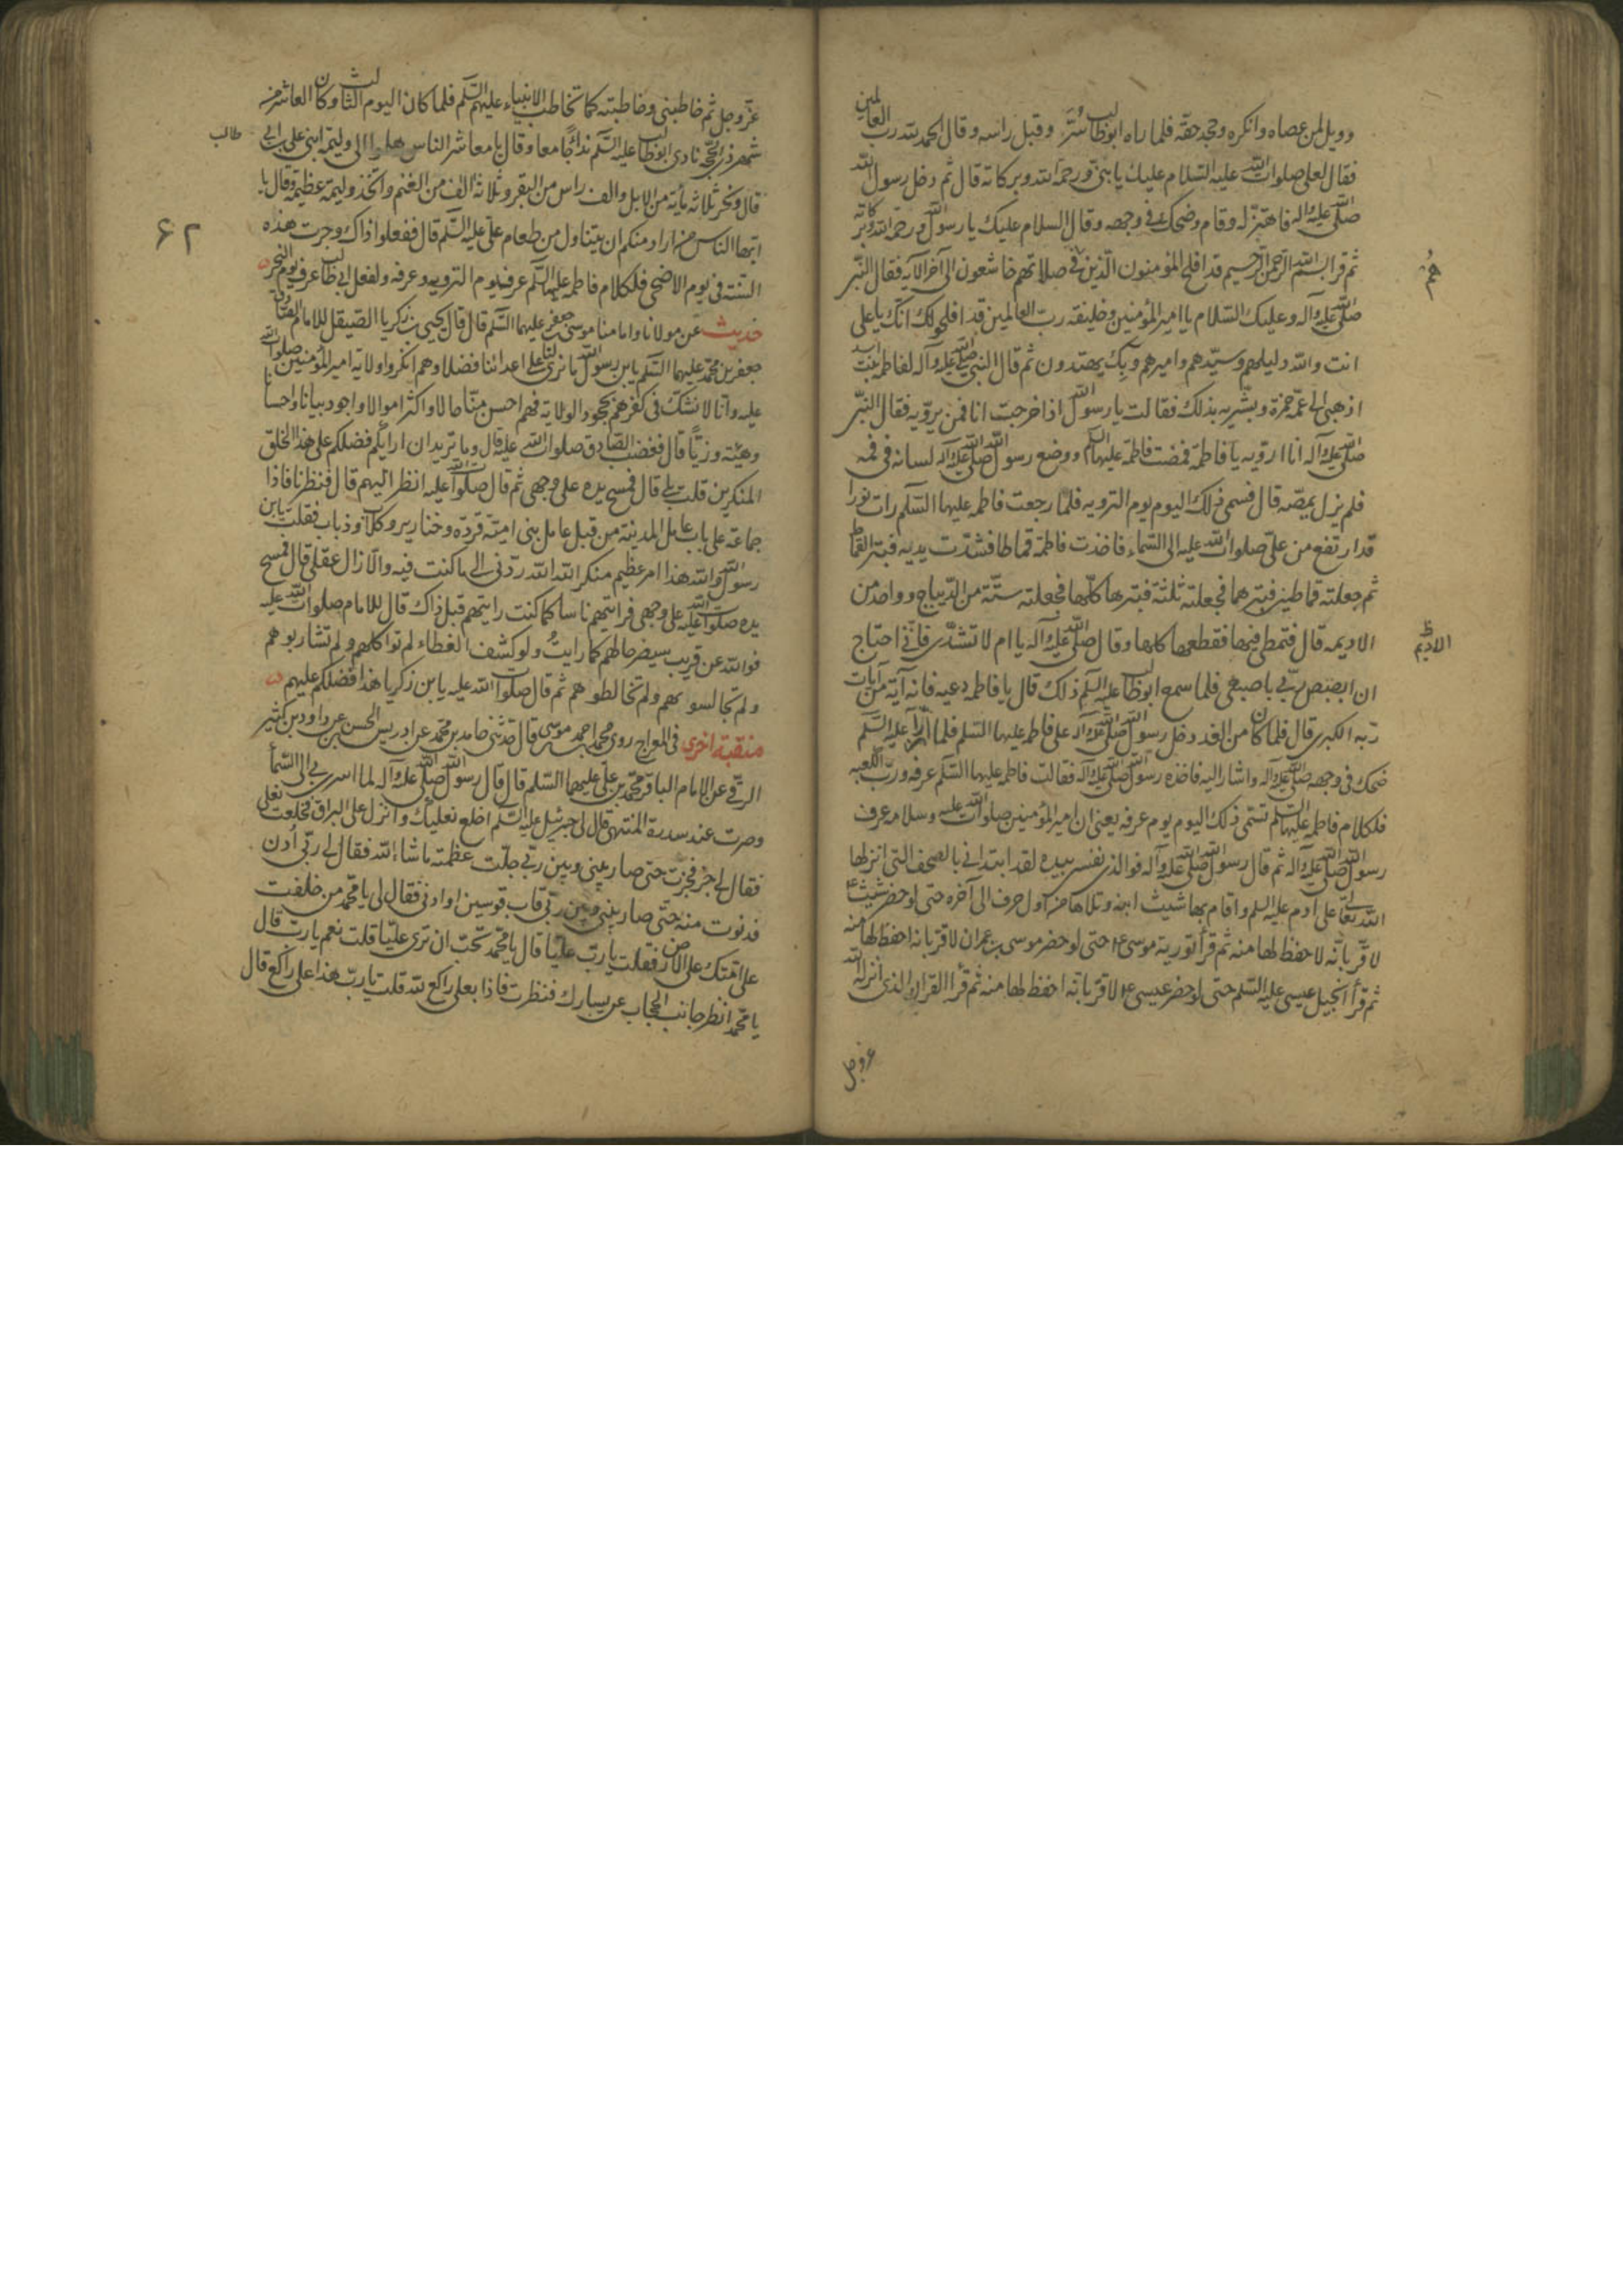 وويل لمن عصاه وانكره وجحد حقه فلما راه ابوطالب سُرَّ وقبل راسه وقال الحمد لله رب العالمين
فقال لعلى صلوات الله عليه السلام عليك يا بنى ورحمة الله وبركاته قال ثم دخل رسول الله
صلى الله عليه واله فاهتز له وقام وضحك فى وجهه وقال السلام عليك يا رسول الله ورحمة الله وبركاته
ثم قرا بسم الله الرحمن الرحيم قد افلح المؤمنون الذين فى صلاتهم خاشعون الى آخر الآيه فقال النبى
هم
صلى الله عليه وآله وعليك السلام يا امير المؤمنين وخليفة رب العالمين قد افلحوا لك انك يا على
انت والله دليلهم وسيدهم واميرهم وبك يهتدون ثم قال النبى صلى الله عليه وآله لفاطمه بنت اسد
اذهبى الى عمه حمزة وبشريه بذلك فقالت يا رسول الله اذا خرجت انا فمن يرويه فقال النبى
صلى الله عليه آله انا ارويه يا فاطمة فمضت فاطمة عليها السلم ووضع رسول الله صلى الله عليه آله لسانه فى فمه
فلم يزل يمصه قال فسمى ذلك اليوم يوم الترويه فلما رجعت فاطمه عليها السلم رات نورا
قد ارتفع من على صلوات الله عليه الى السماء فاخذت فاطمة قماطا فشدت يديه فبتر القماط
ثم جعلته قماطين فبترهما فجعلته ثلثة فبترها كلها فجعلته ستة من الديباج وواحد من
الاديمه قال فتمطى فيها فقطعها كلها وقال صلى الله عليه وآله يا ام لا تشدى فانى احتاج
الاديم
ان ابصبص لربى باصبعى فلما سمع ابوطالب عليه السلم ذلك قال يا فاطمه دعيه فانه آية من آيات
ربه الكبرى قال فلما كان من الغد دخل رسول الله صلى الله عليه وآله على فاطمه عليها السلم فلما رآه عليه السلم
ضحك فى وجهه صلى الله عليه وآله واشار اليه فاخذه رسول الله صلى الله عليه وآله فقالت فاطمه عليها السلم عرفه ورب الكعبه
فلكلام فاطمه عليها السلم تسمى ذلك اليوم يوم عرفه يعنى ان امير المؤمنين صلوات الله عليه وسلامه عرف
رسول الله صلى الله عليه وآله ثم قال رسول الله صلى الله عليه وآله فوالذى نفسى بيده لقد ابتدانى بالصحف التى انزلها
الله تعالى على آدم عليه السلم واقام بها شيث ابنه وتلاها من اول حرف الى آخره حتى لو حضر شيث ع
لاقر بانه لاحفظ لها منه ثم قرأ تورية موسى ع حتى لو حضر موسى بن عمران لاقر بانه احفظ لها منه
ثم قرأ انجيل عيسى عليه السلم حتى لو حضر عيسى ع لاقر بانه احفظ لها منه ثم قرأ القران الذى انزله الله
عز وجل
عز وجل ثم خاطبنى وخاطبته كما تخاطب الانبياء عليهم السلم فلما كان اليوم الثالث وكان العاشر من
شهر ذى الحجه نادى ابوطالب عليه السلم نداء جامعا وقال يا معاشر الناس هلموا الى وليمة ابنى على بن ابى
طالب
قال ونحر ثلاثه مأية من الابل والف راس من البقر وثلاثة الف من الغنم واتخذ وليمة عظيمة وقال يا
ايها الناس من اراد منكم ان يتناول من طعام على عليه السلم قال ففعلوا ذاك وجرت هذه
۶۲
السنة فى يوم الاضحى فلكلام فاطمه عليها السلم عرف يوم الترويه وعرفه ولفعل ابى طالب عرف يوم النحر
حديث عن مولانا وامامنا موسى بن جعفر عليهما السلم قال قال يحيى بن زكريا الصيقل للامام الصادق
جعفر بن محمد عليهما السلم يا بن رسول الله ما نرى لنا على اعدائنا فضلا وهم انكروا ولاية امير المؤمنين صلوات الله
عليه وانا لا نشك فى كفرهم بجحود الولاية فهم احسن منا حالا واكثر اموالا واجود بيانا واحسانا
وهيئة وزيا قال فغضب الصادق صلوات الله عليه قال وما تريد ان اراكم فضلكم على هذا الخلق
المنكرين قلت بلى قال فمسح يده على وجهى ثم قال صلوات الله عليه انظر اليهم قال فنظرنا فاذا
جماعة على باب عامل المدينة من قبل عامل بنى امية قردة وخنازير وكلاب وذباب فقلت يا بن
رسول الله والله هذا امر عظيم منكر الله الله ردنى الى ما كنت فيه والا زال عقلى قال فمسح
يده صلوات الله عليه على وجهى فرايتهم ناسا كما كنت رايتهم قبل ذاك قال للامام صلوات الله عليه
فوالله عن قريب سيصير حالهم كما رايت ولو كشف الغطاء لم تواكلهم ولم تشاربوهم
ولم تجالسوهم ولم تخالطوهم ثم قال صلوات الله عليه يا بن زكريا هذا فضلكم عليهم
منقبة اخرى فى المعراج روى محمد بن احمد بن موسى قال حدثنى حامد بن محمد عن ادريس الحسن بن داود بن كثير
الرقى عن الامام الباقر محمد بن على عليهما السلم قال قال رسول الله صلى الله عليه وآله لما اسرى بى الى السماء
وصرت عند سدرة المنتهى قال لى جبرئيل عليه السلم اخلع نعليك وانزل على البراق فخلعت نعلى
فقال لى اجز فجزت حتى صار بينى وبين ربى جلت عظمته ما شاء الله فقال لى ربى أدن
فدنوت منه حتى صار بينى وبين ربى قاب قوسين او ادنى فقال لى يا محمد من خلفت
على امتك على الارض فقلت يا رب عليا قال يا محمد تحب ان ترى عليا قلت نعم يا رب قال
يا محمد انظر جانب الحجاب عن يسارك فنظرت فاذا بعلى راكع لله قلت يا رب هذا على راكع قال